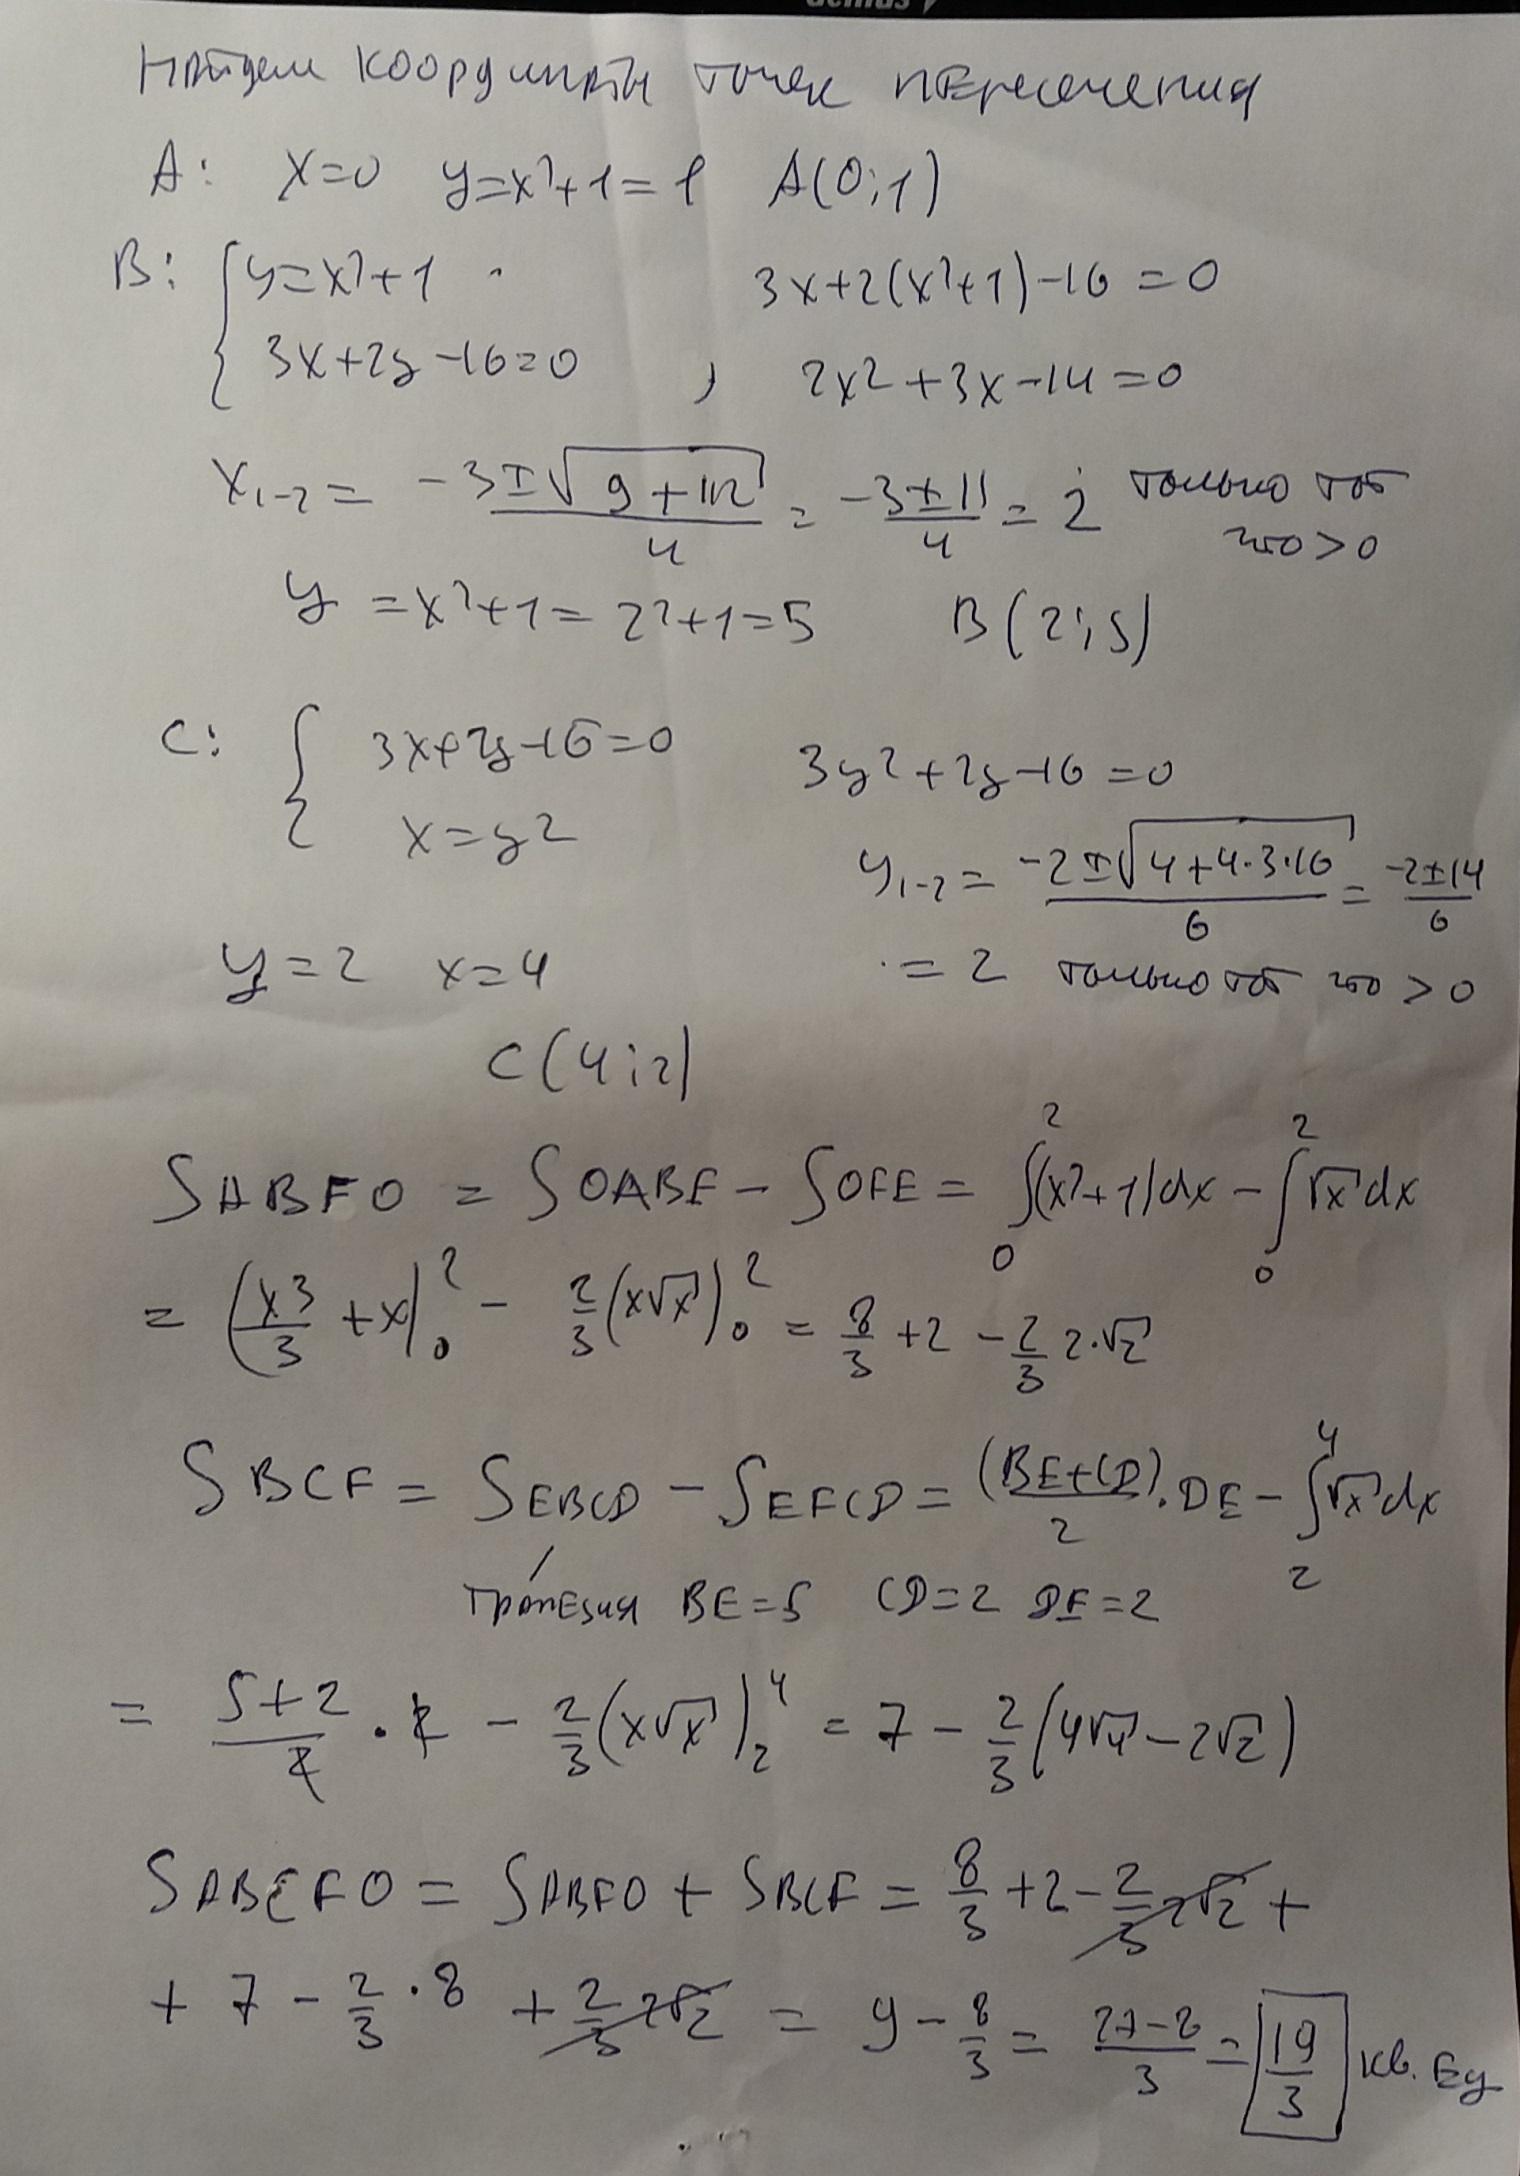 Найдем координаты точек пересечения
A: x=0 y=x²+1=1 A(0;1)
B: { y=x²+1 3x+2(x²+1)-16=0
3x+2y-16=0 , 2x²+3x-14=0
x₁₋₂ = (-3±√(9+112))/4 = (-3±11)/4 = 2 только тот что>0
y=x²+1=2²+1=5 B(2;5)
C: { 3x+2y-16=0 3y²+2y-16=0
x=y²
y₁₋₂ = (-2±√(4+4·3·16))/6 = (-2±14)/6
y=2 x=4 = 2 только тот что >0
C(4;2)
S ABFO = S OABE - S OFE = ∫₀²(x²+1)dx - ∫₀²√x dx
= (x³/3 + x)|₀² - 2/3(x√x)₀² = 8/3 + 2 - 2/3 2·√2
S BCF = S EBCD - S EFCD = (BE+CD)/2 · DE - ∫₂⁴√x dx
трапеция BE=5 CD=2 DE=2
= (5+2)/2 · 2 - 2/3(x√x)₂⁴ = 7 - 2/3(4√4 - 2√2)
S ABCFO = S ABFO + S BCF = 8/3 + 2 - 2/3 2√2 +
+ 7 - 2/3 · 8 + 2/3 2√2 = 9 - 8/3 = (27-8)/3 = 19/3 кв. Ед